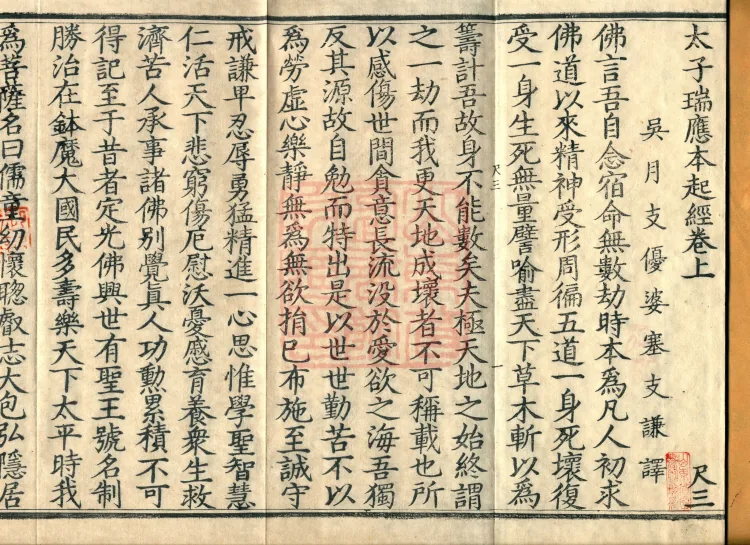 太子瑞應本起經卷上
尺三
吳月支優婆塞支謙譯
佛言吾自念宿命無數劫時本為凡人初求
佛道以來精神受形周徧五道一身死壞復
受一身生死無量譬喻盡天下草木斬以為
籌計吾故身不能數矣夫極天地之始終謂
之一劫而我更天地成壞者不可稱載也所
以感傷世間貪意長流没於愛欲之海吾獨
反其源故自勉而特出是以世世勤苦不以
為勞虛心樂靜無為無欲捎已布施至誠守
戒謙卑忍辱勇猛精進一心思惟學聖智慧
仁活天下悲窮傷厄慰沃憂慼育養衆生救
濟苦人承事諸佛別覺眞人功勳累積不可
得記至于昔者定光佛興世有聖王號名制
勝治在鉢魔大國民多壽樂天下太平時我
為菩薩名曰儒童幼懷聰叡志大包弘隱居
尺三
一